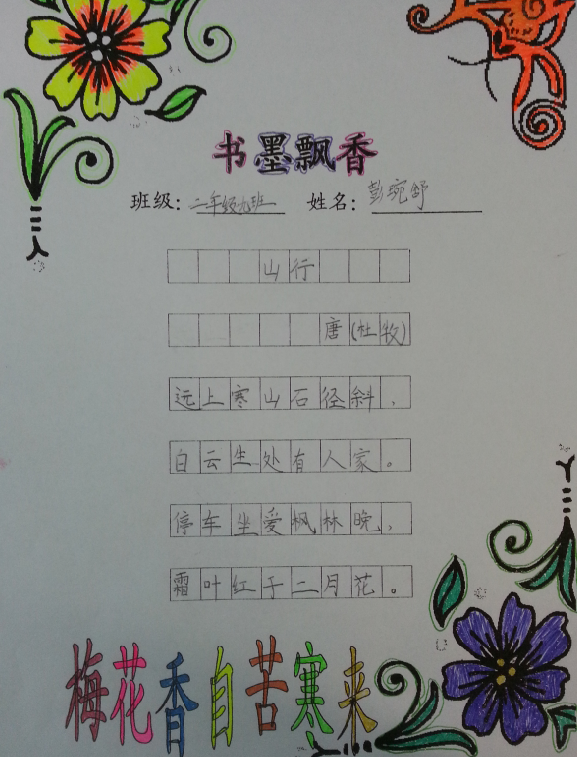 书墨飘香
班级：二年级九班 姓名：彭琬舒
山行
唐(杜牧)
远上寒山石径斜，
白云生处有人家。
停车坐爱枫林晚，
霜叶红于二月花。
梅花香自苦寒来